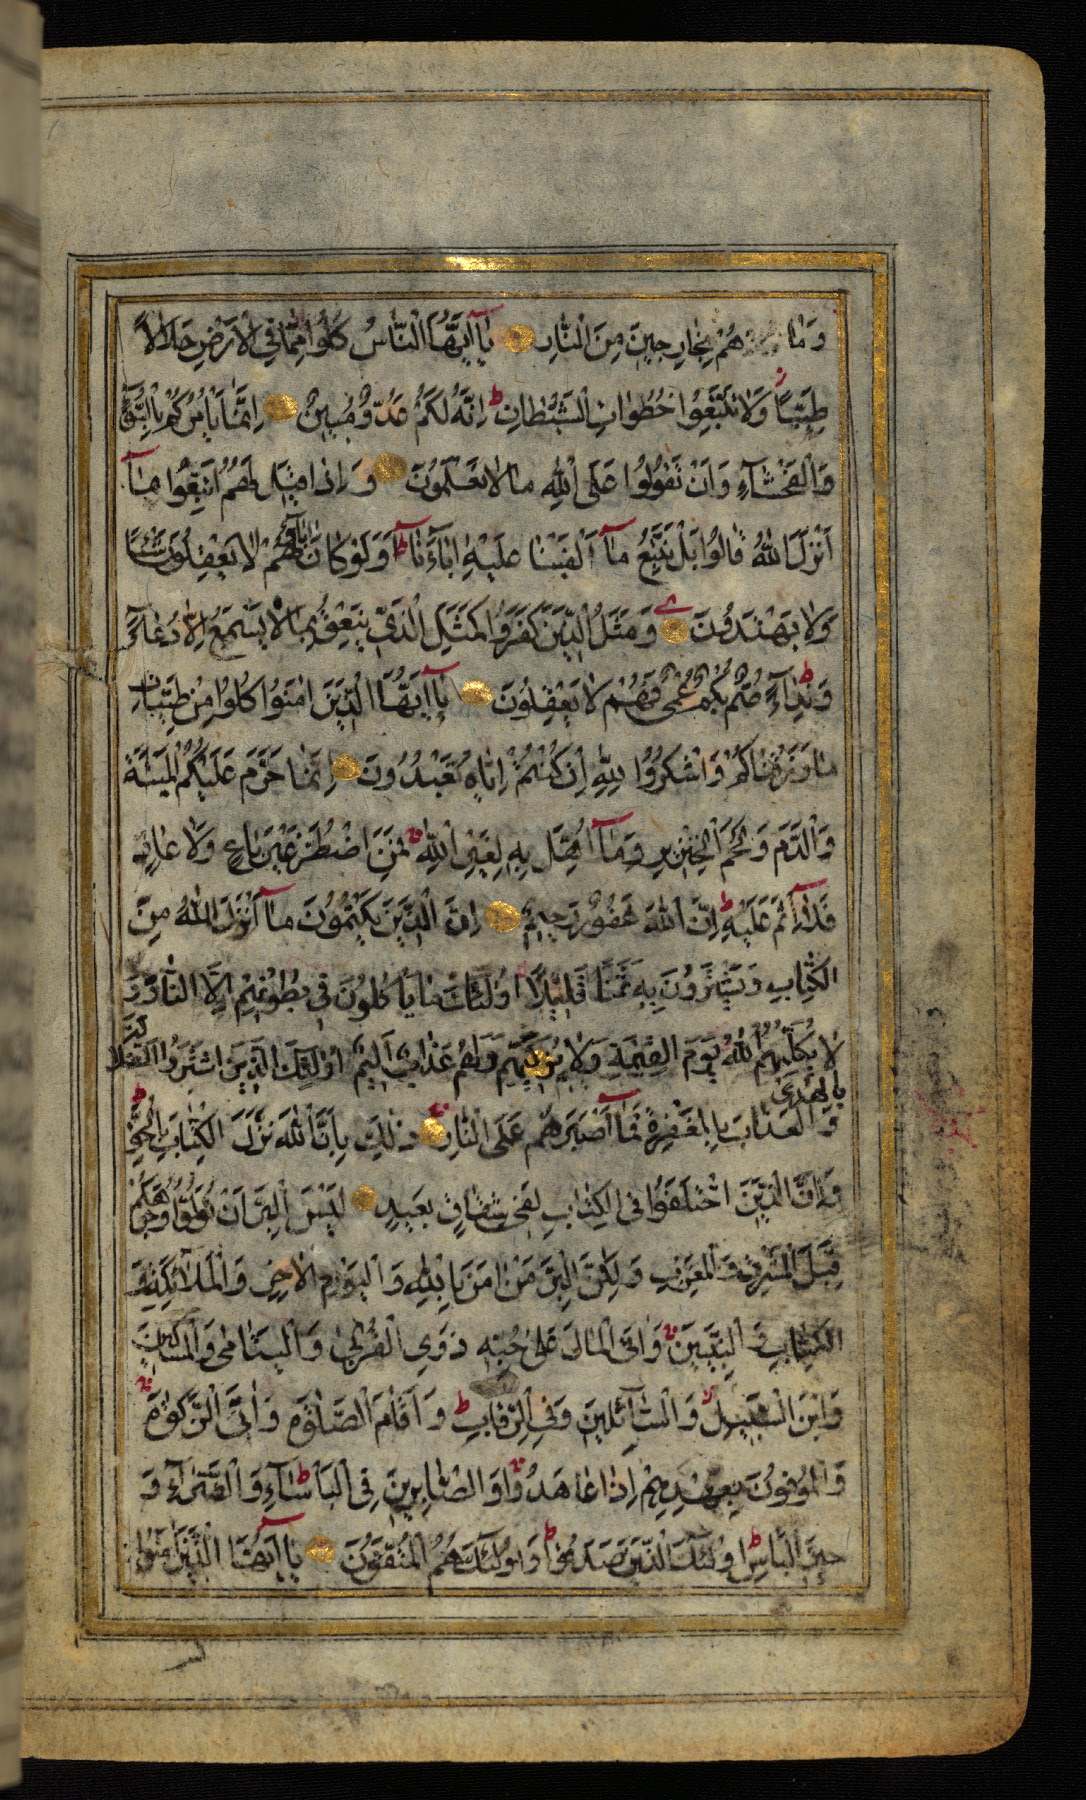 وَمَا هُمْ بِخَارِجِينَ مِنَ النَّارِ يَا أَيُّهَا النَّاسُ كُلُوا مِمَّا فِي الْأَرْضِ حَلَالًا
طَيِّبًا وَلَا تَتَّبِعُوا خُطُوَاتِ الشَّيْطَانِ ط إِنَّهُ لَكُمْ عَدُوٌّ مُبِينٌ إِنَّمَا يَأْمُرُكُمْ بِالسُّوءِ
وَالْفَحْشَاءِ وَأَنْ تَقُولُوا عَلَى اللَّهِ مَا لَا تَعْلَمُونَ وَإِذَا قِيلَ لَهُمُ اتَّبِعُوا مَا
أَنْزَلَ اللَّهُ قَالُوا بَلْ نَتَّبِعُ مَا أَلْفَيْنَا عَلَيْهِ آبَاءَنَا ط أَوَلَوْ كَانَ آبَاؤُهُمْ لَا يَعْقِلُونَ شَيْئًا
وَلَا يَهْتَدُونَ وَمَثَلُ الَّذِينَ كَفَرُوا كَمَثَلِ الَّذِي يَنْعِقُ بِمَا لَا يَسْمَعُ إِلَّا دُعَاءً
وَنِدَاءً ط صُمٌّ بُكْمٌ عُمْيٌ فَهُمْ لَا يَعْقِلُونَ يَا أَيُّهَا الَّذِينَ آمَنُوا كُلُوا مِنْ طَيِّبَاتِ
مَا رَزَقْنَاكُمْ وَاشْكُرُوا لِلَّهِ إِنْ كُنْتُمْ إِيَّاهُ تَعْبُدُونَ إِنَّمَا حَرَّمَ عَلَيْكُمُ الْمَيْتَةَ
وَالدَّمَ وَلَحْمَ الْخِنْزِيرِ وَمَا أُهِلَّ بِهِ لِغَيْرِ اللَّهِ فَمَنِ اضْطُرَّ غَيْرَ بَاغٍ وَلَا عَادٍ
فَلَا إِثْمَ عَلَيْهِ ط إِنَّ اللَّهَ غَفُورٌ رَحِيمٌ إِنَّ الَّذِينَ يَكْتُمُونَ مَا أَنْزَلَ اللَّهُ مِنَ
الْكِتَابِ وَيَشْتَرُونَ بِهِ ثَمَنًا قَلِيلًا أُولَئِكَ مَا يَأْكُلُونَ فِي بُطُونِهِمْ إِلَّا النَّارَ وَ
لَا يُكَلِّمُهُمُ اللَّهُ يَوْمَ الْقِيمَةِ وَلَا يُزَكِّيهِمْ وَلَهُمْ عَذَابٌ أَلِيمٌ أُولَئِكَ الَّذِينَ اشْتَرَوُا الضَّلَالَةَ
بِالْهُدَى
وَالْعَذَابَ بِالْمَغْفِرَةِ فَمَا أَصْبَرَهُمْ عَلَى النَّارِ ذَلِكَ بِأَنَّ اللَّهَ نَزَّلَ الْكِتَابَ بِالْحَقِّ ط
وَإِنَّ الَّذِينَ اخْتَلَفُوا فِي الْكِتَابِ لَفِي شِقَاقٍ بَعِيدٍ لَيْسَ الْبِرَّ أَنْ تُوَلُّوا وُجُوهَكُمْ
قِبَلَ الْمَشْرِقِ وَالْمَغْرِبِ وَلَكِنَّ الْبِرَّ مَنْ آمَنَ بِاللَّهِ وَالْيَوْمِ الْآخِرِ وَالْمَلَائِكَةِ وَ
الْكِتَابِ وَالنَّبِيِّينَ وَآتَى الْمَالَ عَلَى حُبِّهِ ذَوِي الْقُرْبَى وَالْيَتَامَى وَالْمَسَاكِينَ
وَابْنَ السَّبِيلِ وَالسَّائِلِينَ وَفِي الرِّقَابِ ط وَأَقَامَ الصَّلَوةَ وَآتَى الزَّكَوةَ
وَالْمُوفُونَ بِعَهْدِهِمْ إِذَا عَاهَدُوا وَالصَّابِرِينَ فِي الْبَأْسَاءِ وَالضَّرَّاءِ وَ
حِينَ الْبَأْسِ ط أُولَئِكَ الَّذِينَ صَدَقُوا ط وَأُولَئِكَ هُمُ الْمُتَّقُونَ يَا أَيُّهَا الَّذِينَ آمَنُوا